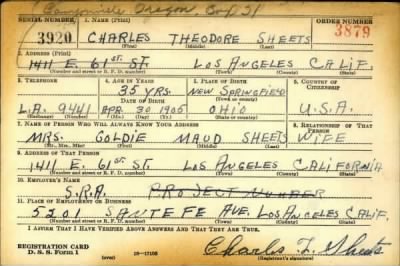 Canyonville Oregon Box 51
SERIAL NUMBER 1. NAME (Print) ORDER NUMBER
3920 CHARLES THEODORE SHEETS 3879
(First) (Middle) (Last)
2. ADDRESS (Print)
1411 E. 61ST. ST. LOS ANGELES CALIF.
(Number and street or R. F. D. number) (Town) (County) (State)
3. TELEPHONE 4. AGE IN YEARS 5. PLACE OF BIRTH 6. COUNTRY OF CITIZENSHIP
35 YRS. NEW SPRINGFIELD
DATE OF BIRTH
L.A. 9441 APR 30 1905 OHIO U.S.A.
(Exchange) (Number) (Mo.) (Day) (Yr.) (State or country)
7. NAME OF PERSON WHO WILL ALWAYS KNOW YOUR ADDRESS 8. RELATIONSHIP OF THAT PERSON
MRS. GOLDIE MAUD SHEETS WIFE
(Mr., Mrs., Miss) (First) (Middle) (Last)
9. ADDRESS OF THAT PERSON
1411 E. 61ST ST. LOS ANGELES CALIFORNIA
(Number and street or R. F. D. number) (Town) (County) (State)
10. EMPLOYER'S NAME
S.R.A. PROJECT NUMBER
11. PLACE OF EMPLOYMENT OR BUSINESS
5201 SANTE FE AVE. LOS ANGELES CALIF.
(Number and street or R. F. D. number) (Town) (County) (State)
I AFFIRM THAT I HAVE VERIFIED ABOVE ANSWERS AND THAT THEY ARE TRUE.
REGISTRATION CARD
D. S. S. Form 1 (over) 16—17105 Charles T. Sheets
(Registrant's signature)